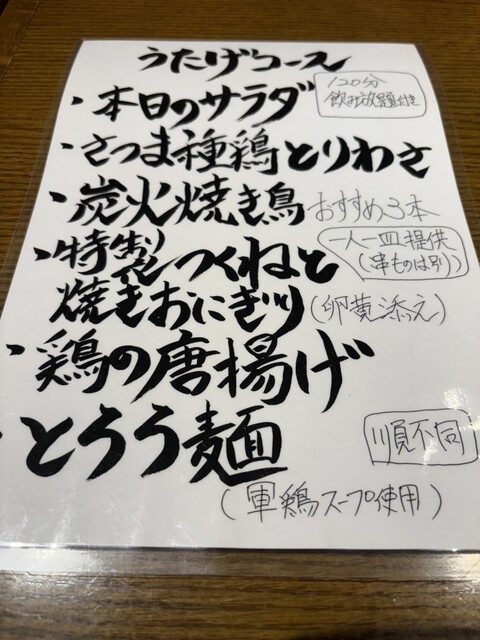 うたげコース
120分
飲み放題付き
・本日のサラダ
・さつま種鶏とりわさ
・炭火焼き鳥 おすすめ3本
一人一皿提供
(串ものは別)
・特製つくねと
焼きおにぎり(卵黄添え)
・鶏の唐揚げ
・とろろ麺
順不同
(軍鶏スープ使用)